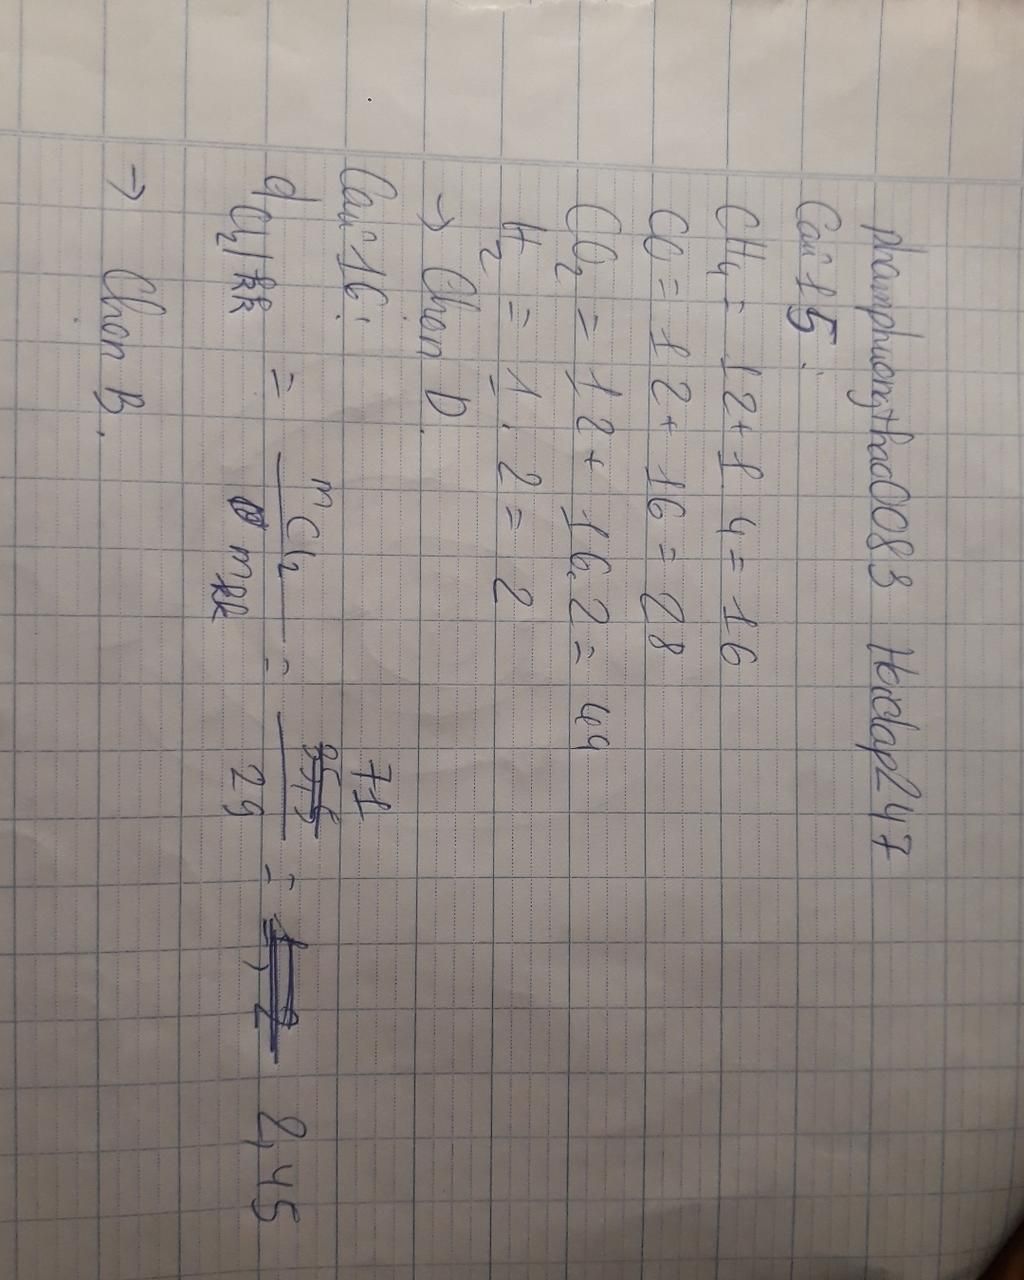 phamphuongthao0083 Hoidap247
Câu 15:
CH4 = 12+1.4 = 16
CO = 12+ 16 = 28
CO2 = 12+ 16.2 = 44
H2 = 1.2 = 2
→ Chọn D.
Câu 16:
dCl2/kk = mCl2/mkk = 71/29 = 2,45
→ Chọn B.